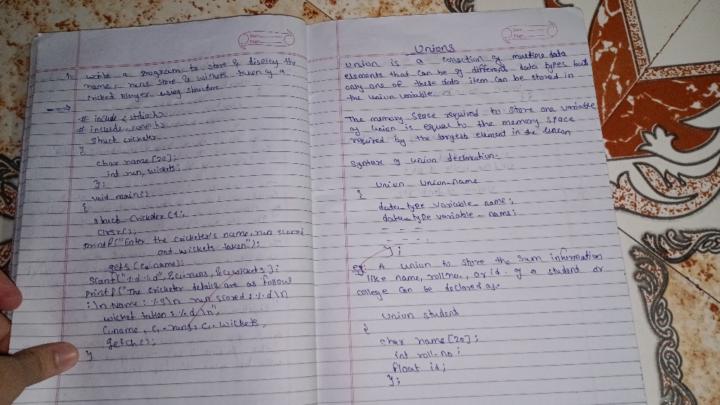 1. write a program to store & display the
name, runs score & wickets taken by a
cricket player using structure.
# include <stdio.h>
# include <conio.h>
struct cricketer
{
char name [20];
int run, wickets;
};
void main()
{
struct Cricketer C1;
clrscr();
printf("Enter the cricketer's name, run scored
and wickets taken");
gets (C1.name);
scanf("%d %d", &C1.runs, &C1.wickets);
printf("The cricketer details are as follow
:\n Name: %s\n run scored: %d\n
wicket taken: %d\n",
C1.name, C1.runs, C1.wickets,
getch();
}
Unions
Union is a collection of multiple data
elements that can be of different data types but
only one of these data item can be stored in
the union variable.
The memory space required to store one variable
of union is equal to the memory space
required by the largest element in the union
Syntax of union declaration-
union union-name
{
data-type variable-name;
data-type variable-name;
- - - -
- - - -
};
eg: A union to store the information
like name, roll no, or id. of a student or
college can be declared as-
Union student
{
char name [20];
int roll-no;
float id;
};